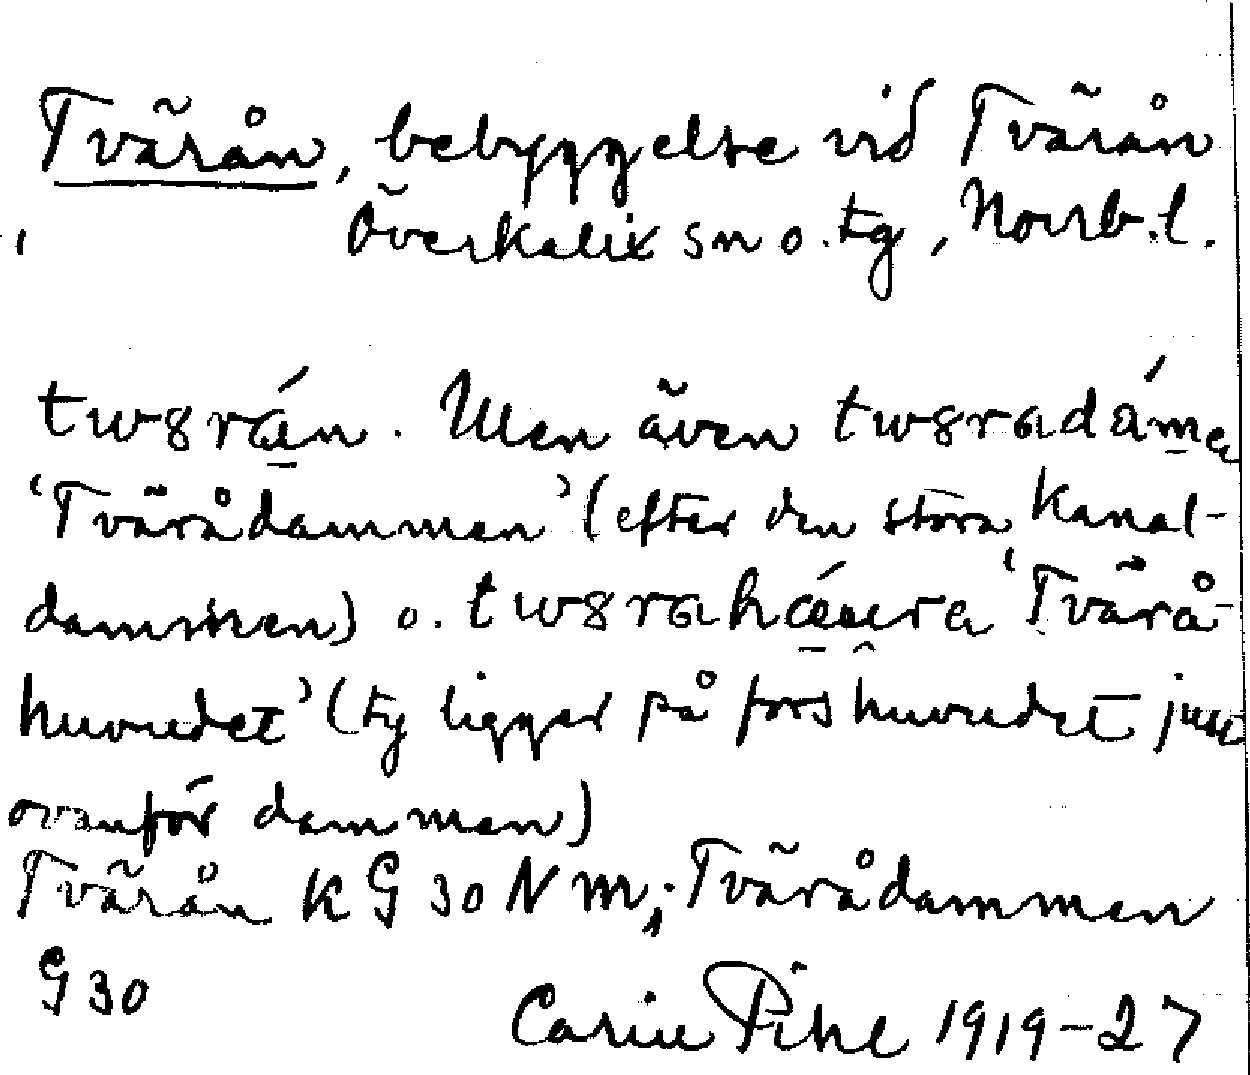 Tvärån, bebyggelse vid Tvärån
Överkalix sn o. tg, Norrb.l.
Men även
'Tvärådammen' (efter den stora Kanal-
dammen) o. 'Tvärå-
huvudet' (ty ligger på forshuvudet just
ovanför dammen)
Tvärån K G 30 N m; Tvärådammen
G 30
Carin Pihl 1919-27